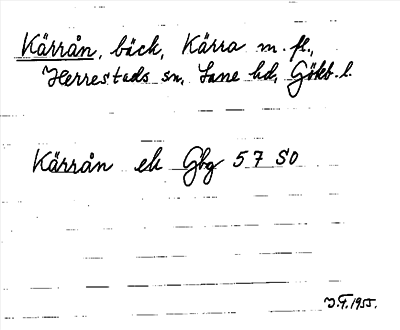 Kärrån, bäck, Kärra m. fl.,
Herrestads sn, Lane hd, Gökb. l.
Kärrån ek Gbg 57 SO
J.F. 1955.